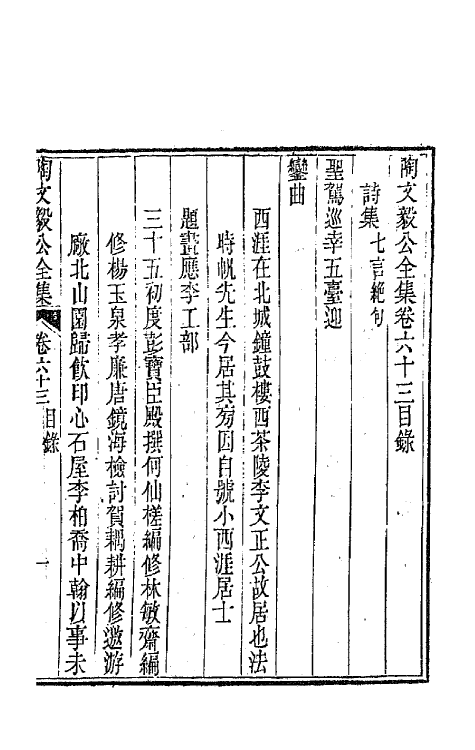 陶文毅公全集卷六十三目錄
詩集七言絶句
聖駕巡幸五臺迎
鑾曲
西涯在北城鐘鼓樓西茶陵李文正公故居也法
時帆先生今居其旁因自號小西涯居士
題畫應李工部
三十五初度彭寶臣殿撰何仙槎編修林敏齋編
修楊玉泉孝廉唐鏡海檢討賀耦耕編修邀游
厰北山園歸飲印心石屋李柏喬中翰以事未
陶文毅公全集
卷六十三目錄
一